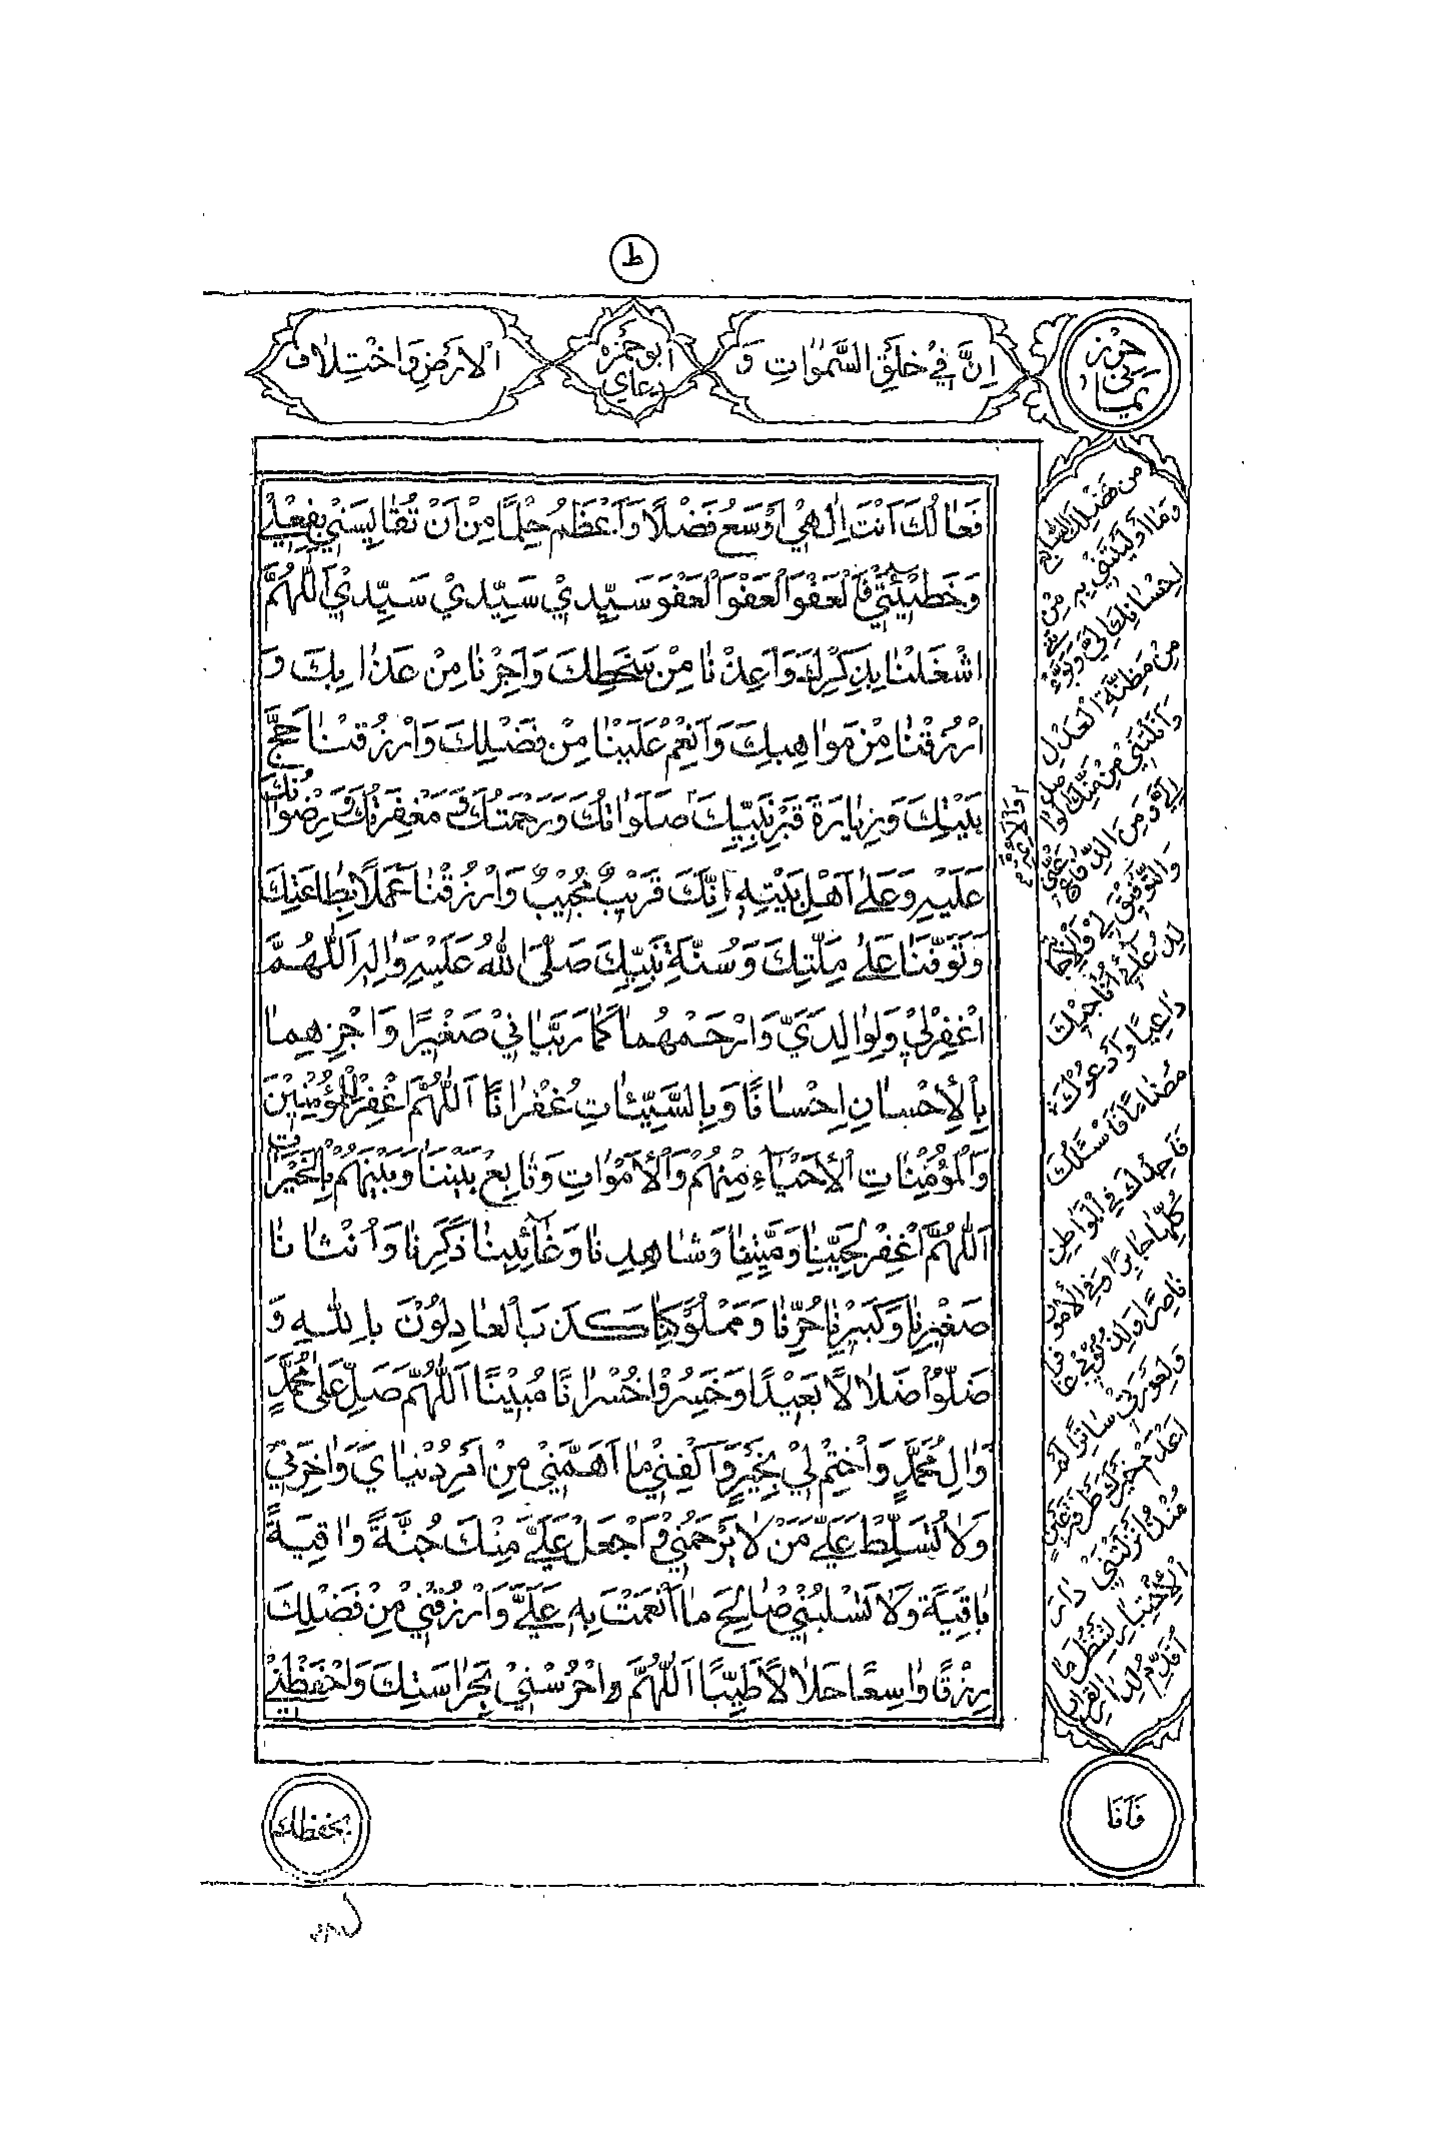 ط
حرز
يمانى
اِنَّ فِيْ خَلْقِ السَّمٰوٰاتِ وَ
ابوحمزه
دعاي
الْاَرْضِ وَاخْتِلٰافِ
فَعٰالُكَ اَنْتَ اِلٰهِيْ اَوْسَعُ فَضْلًا وَاَعْظَمُ حِلْمًا مِنْ اَنْ تُقٰايِسَنِيْ بِفِعْلِيْ
وَخَطِيْئَتِيْ فَالْعَفْوَ الْعَفْوَ الْعَفْوَ سَيِّدِيْ سَيِّدِيْ سَيِّدِيْ اَللّٰهُمَّ
اشْغَلْنٰا بِذِكْرِكَ وَاَعِذْنٰا مِنْ سَخَطِكَ وَاَجِرْنٰا مِنْ عَذٰابِكَ وَ
ارْزُقْنٰا مِنْ مَوٰاهِبِكَ وَاَنْعِمْ عَلَيْنٰا مِنْ فَضْلِكَ وَارْزُقْنٰا حَجَّ
بَيْتِكَ وَزِيٰارَةَ قَبْرِ نَبِيِّكَ صَلَوٰاتُكَ وَرَحْمَتُكَ وَ مَغْفِرَتُكَ وَ رِضْوٰانُكَ
عَلَيْهِ وَعَلٰى اَهْلِ بَيْتِهِ اِنَّكَ قَرِيْبٌ مُجِيْبٌ وَارْزُقْنٰا عَمَلًا بِطٰاعَتِكَ
وَتَوَفَّنٰا عَلٰى مِلَّتِكَ وَسُنَّةِ نَبِيِّكَ صَلَّى اللّٰهُ عَلَيْهِ وَاٰلِهِ اَللّٰهُمَّ
اغْفِرْلِيْ وَلِوٰالِدَيَّ وَارْحَمْهُمٰا كَمٰا رَبَّيٰانِيْ صَغِيْرًا وَاجْزِهِمٰا
بِالْاِحْسٰانِ اِحْسٰانًا وَبِالسَّيِّئٰاتِ غُفْرٰانًا اَللّٰهُمَّ اغْفِرْ لِلْمُؤْمِنِيْنَ
وَالْمُؤْمِنٰاتِ الْاَحْيٰاءِ مِنْهُمْ وَالْاَمْوٰاتِ وَتٰابِعْ بَيْنَنٰا وَبَيْنَهُمْ بِالْخَيْرٰاتِ
اَللّٰهُمَّ اغْفِرْ لِحَيِّنٰا وَمَيِّتِنٰا وَشٰاهِدِنٰا وَغٰائِبِنٰا ذَكَرِنٰا وَاُنْثٰانٰا
صَغِيْرِنٰا وَكَبِيْرِنٰا حُرِّنٰا وَمَمْلُوْكِنٰا كَذَبَ الْعٰادِلُوْنَ بِاللّٰهِ وَ
ضَلُّوْا ضَلٰالًا بَعِيْدًا وَخَسِرُوْا خُسْرٰانًا مُبِيْنًا اَللّٰهُمَّ صَلِّ عَلٰى مُحَمَّدٍ
وَاٰلِ مُحَمَّدٍ وَاخْتِمْ لِيْ بِخَيْرٍ وَاكْفِنِيْ مٰا اَهَمَّنِيْ مِنْ اَمْرِ دُنْيٰايَ وَاٰخِرَتِيْ
وَلٰا تُسَلِّطْ عَلَيَّ مَنْ لٰا يَرْحَمُنِيْ وَ اجْعَلْ عَلَيَّ مِنْكَ جُنَّةً وٰاقِيَةً
بٰاقِيَةً وَلٰا تَسْلُبْنِيْ صٰالِحَ مٰا اَنْعَمْتَ بِهِ عَلَيَّ وَارْزُقْنِيْ مِنْ فَضْلِكَ
رِزْقًا وٰاسِعًا حَلٰالًا طَيِّبًا اَللّٰهُمَّ وَاحْرُسْنِيْ بِحَرٰاسَتِكَ وَاحْفَظْنِيْ
مِنْ فَضْلِكَ السّٰابِغِ
وَمٰا اَوْلَيْتَنِيْ بِهِ مِنْ
اِحْسٰانِكَ اِلَيَّ وَ
مِنْ مَظِنَّةِ الْعَدْلِ
وَاَنَلْتَنِيْ مِنْ مَنِّكَ
اِلَيَّ وَ مِنَ الدِّفٰاعِ عَنِّيْ
وَالتَّوْفِيْقِ لِيْ وَالْاِجٰا
اُنٰاجِيْكَ
دٰاعِيًا وَ اَدْعُوْكَ
مُضٰامًا فَاَسْئَلُكَ
فَاَجِدُكَ فِي الْمَوٰاطِنِ
كُلِّهٰا جٰابِرًا وَ فِي الْاُمُوْرِ
نٰاصِرًا وَلِذُنُوْبِيْ غٰافِرًا
وَلِعَوْرَتِيْ سٰاتِرًا لَمْ
اَعْدَمْ خَيْرَكَ طَرْفَةَ عَيْنٍ
مُنْذُ اَنْزَلْتَنِيْ دٰارَ
الْاِخْتِيٰارِ لِتَنْظُرَ مٰا
اُقَدِّمُ لِدٰارِ الْقَرٰارِ
فَاَنَا
بحفظك